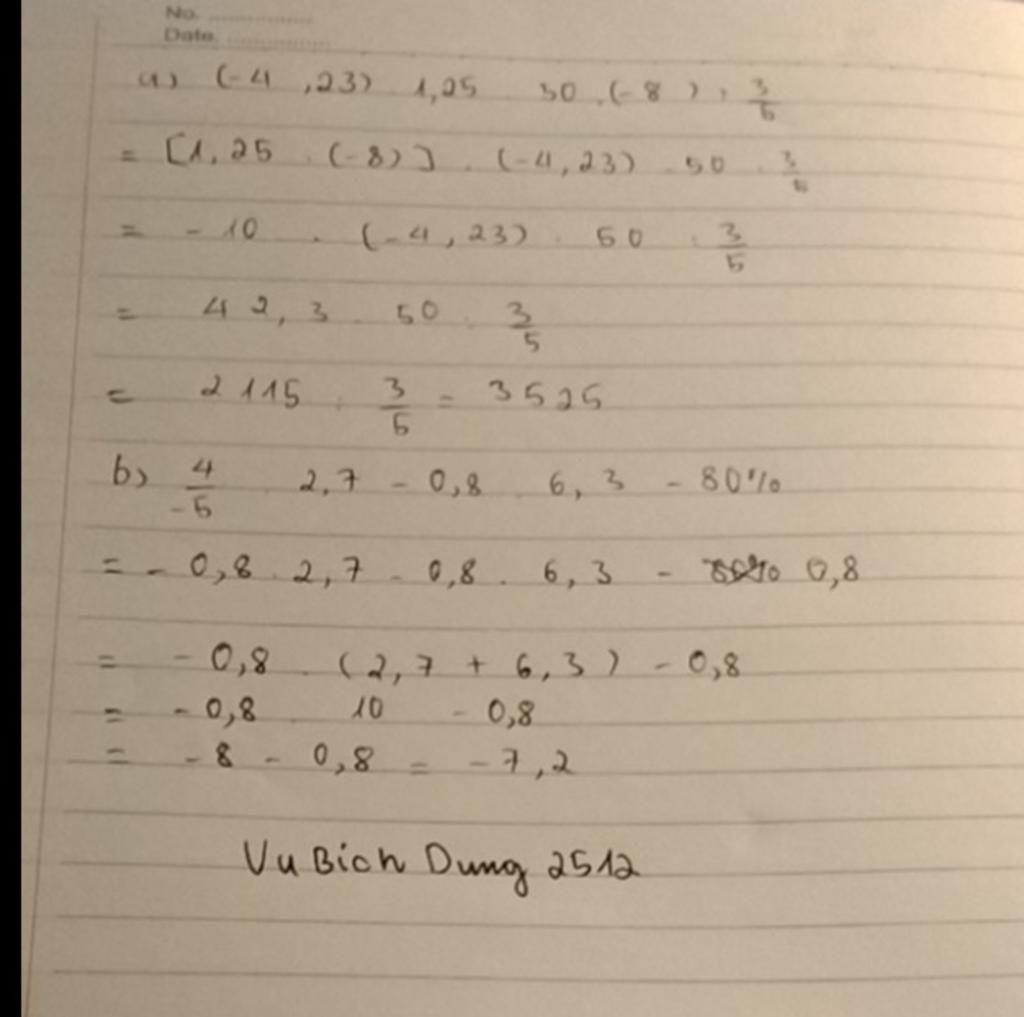 No. ..............
Date. ..............
a) (-4,23) 1,25 50 . (-8) : 3/5
= [1,25 . (-8)] . (-4,23) . 50 : 3/5
= -10 . (-4,23) . 50 : 3/5
= 42,3 . 50 : 3/5
= 2115 : 3/5 = 3525
b) 4/-5 . 2,7 - 0,8 . 6,3 - 80%
= - 0,8 . 2,7 - 0,8 . 6,3 - 0,8
= - 0,8 . (2,7 + 6,3) - 0,8
= - 0,8 . 10 - 0,8
= - 8 - 0,8 = - 7,2
Vu Bich Dung 2512